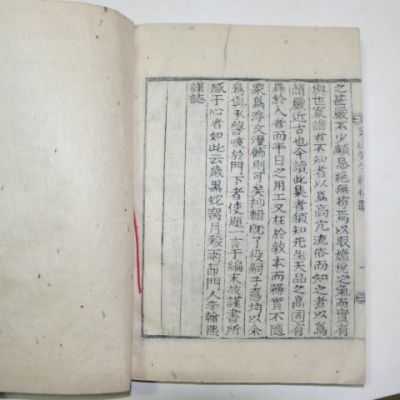 之甚嚴不少顧忌絶無
以取
氣而實有
與世
者不知者以爲高亢流俗而知之者以爲
簡嚴近古也今讀此集者須知先生天品之高固有
異於人者而平日之用工又在於敦本而
實不隱
衆爲浮文漫飾則可矣
輯既了役嗣子
均以余
爲與
於門下者使題一言于編末故謹書所
感于心者如此云歲黑蛇
月穀雨節門人李
熙
謹誌